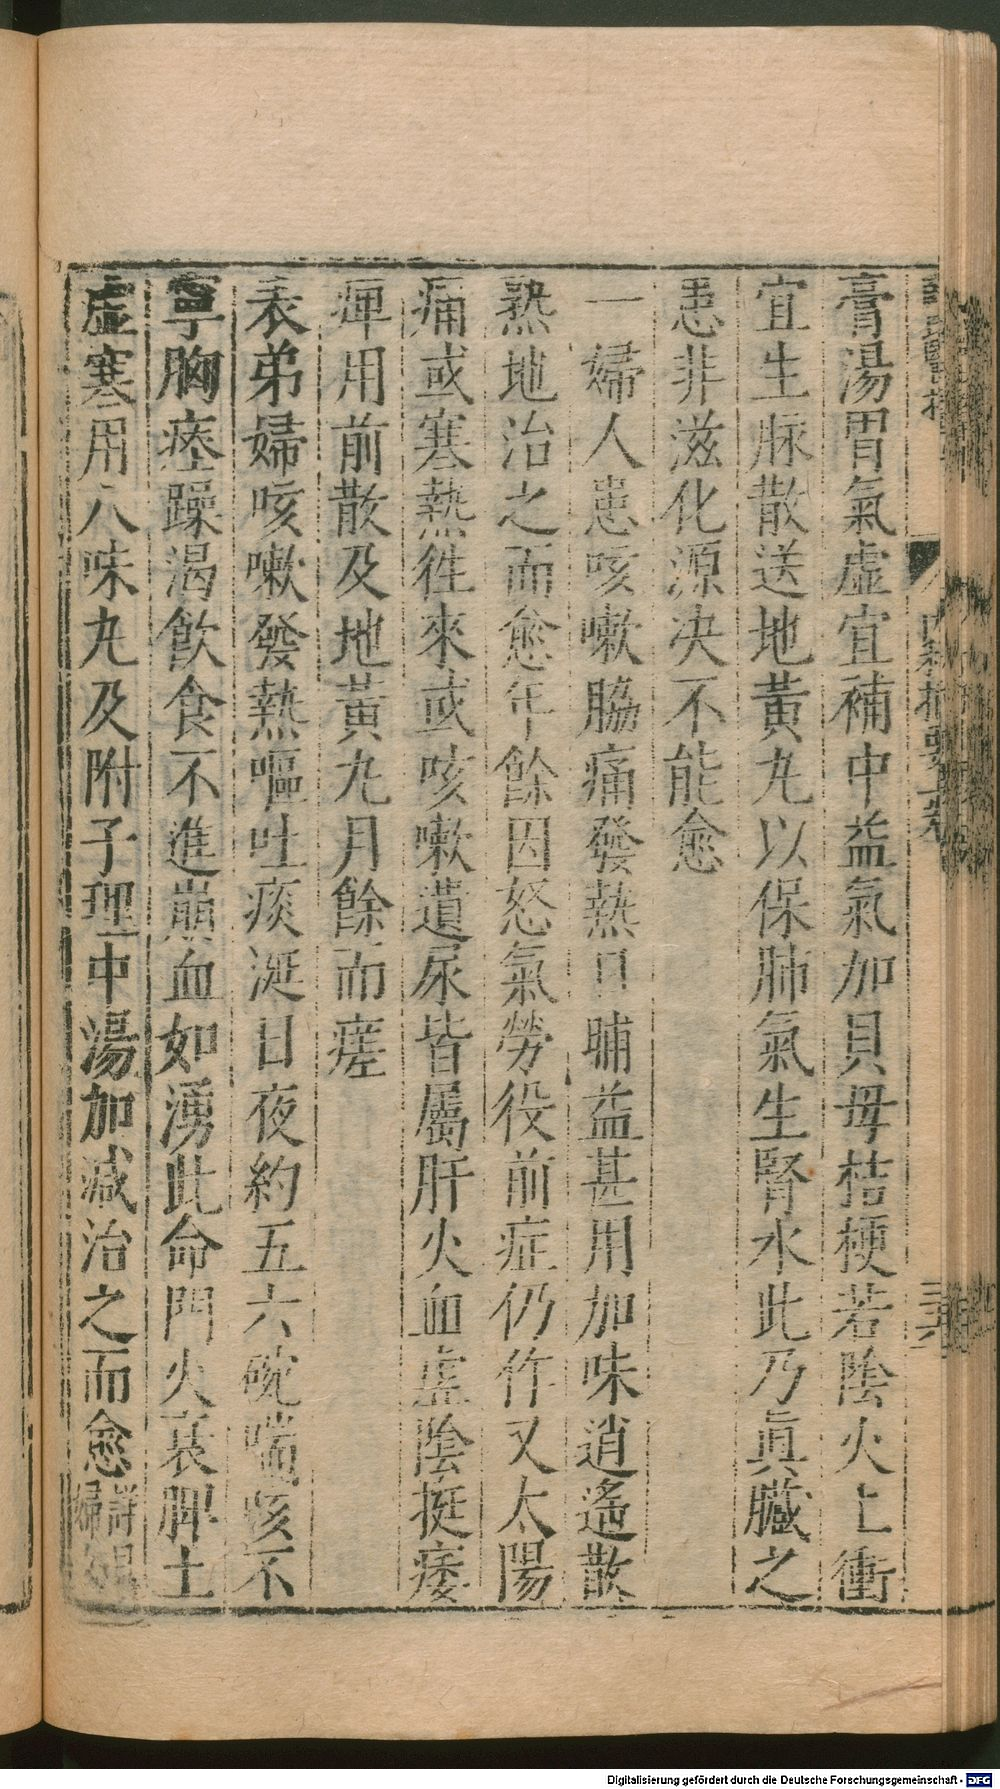 膏湯胃氣虛宜補中益氣加貝母桔梗若陰火上衝
宜生脉散送地黃九以保肺氣生腎水此乃眞臟之
患非滋化源决不能愈
一婦人患咳嗽脇痛發熱日晡益甚用加味逍遙散
熟地治之而愈年餘因怒氣勞役前症仍作又太陽
痛或寒熱徃來或咳嗽遺尿皆屬肝火血虛陰挺痿
痺用前散及地黃九月餘而瘥
表弟婦咳嗽發熱嘔吐痰涎日夜約五六碗喘咳不
寧胸痞躁渴飲食不進崩血如湧此命門火衰脾土
虛寒用八味九及附子理中湯加減治之而愈詳見
婦
內科摘要上卷
Digitalisierung gefördert durch die Deutsche Forschungsgemeinschaft - DFG